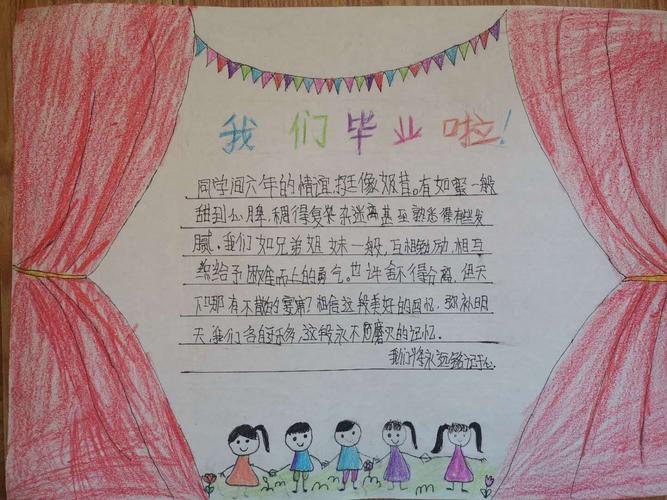 我们毕业啦！
同学间六年的情谊,挺像奶昔。有如蜜一般
甜到心脾,稠得复杂迷离甚至熟悉得有些发
腻。我们如兄弟姐妹一般,互相鼓励,相互
给予困难而上的勇气。也许舍不得分离,但天
下哪有不散的宴席?相信这段美好的回忆,弥补明
天,我们各自东西,这段永不磨灭的记忆。
我们将永远铭记于心